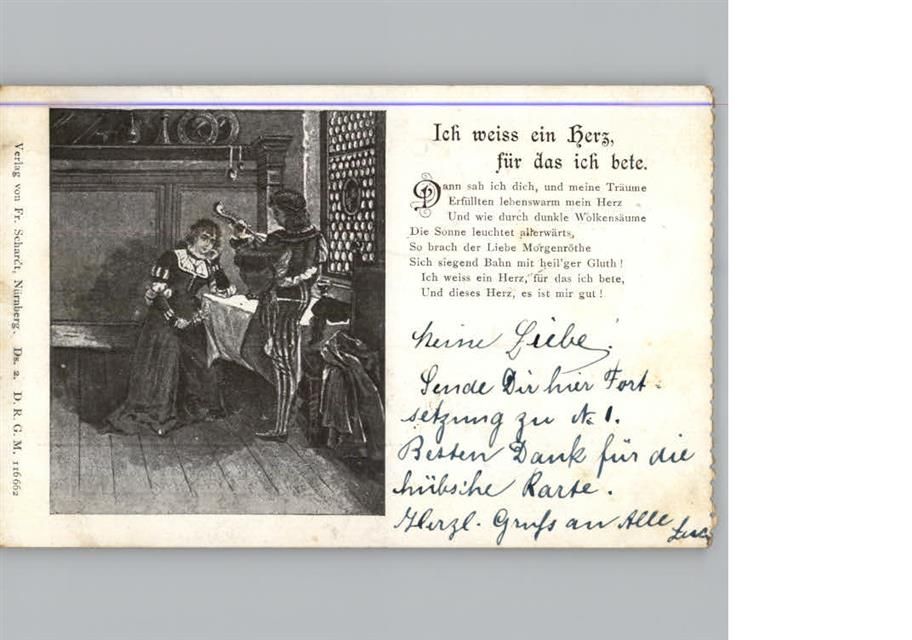 Verlag von Fr. Schardt, Nürnberg. Ds. 2. D. R. G. M. 116662
Ich weiss ein Herz,
für das ich bete.
Dann sah ich dich, und meine Träume
Erfüllten lebenswarm mein Herz
Und wie durch dunkle Wolkensäume
Die Sonne leuchtet allerwärts,
So brach der Liebe Morgenröthe
Sich siegend Bahn mit heil'ger Gluth!
Ich weiss ein Herz, für das ich bete,
Und dieses Herz, es ist mir gut!
Meine Liebe!
Sende Dir hier Fort-
setzung zu N. 1.
Besten Dank für die
hübsche Karte.
Herzl. Gruß an Alle